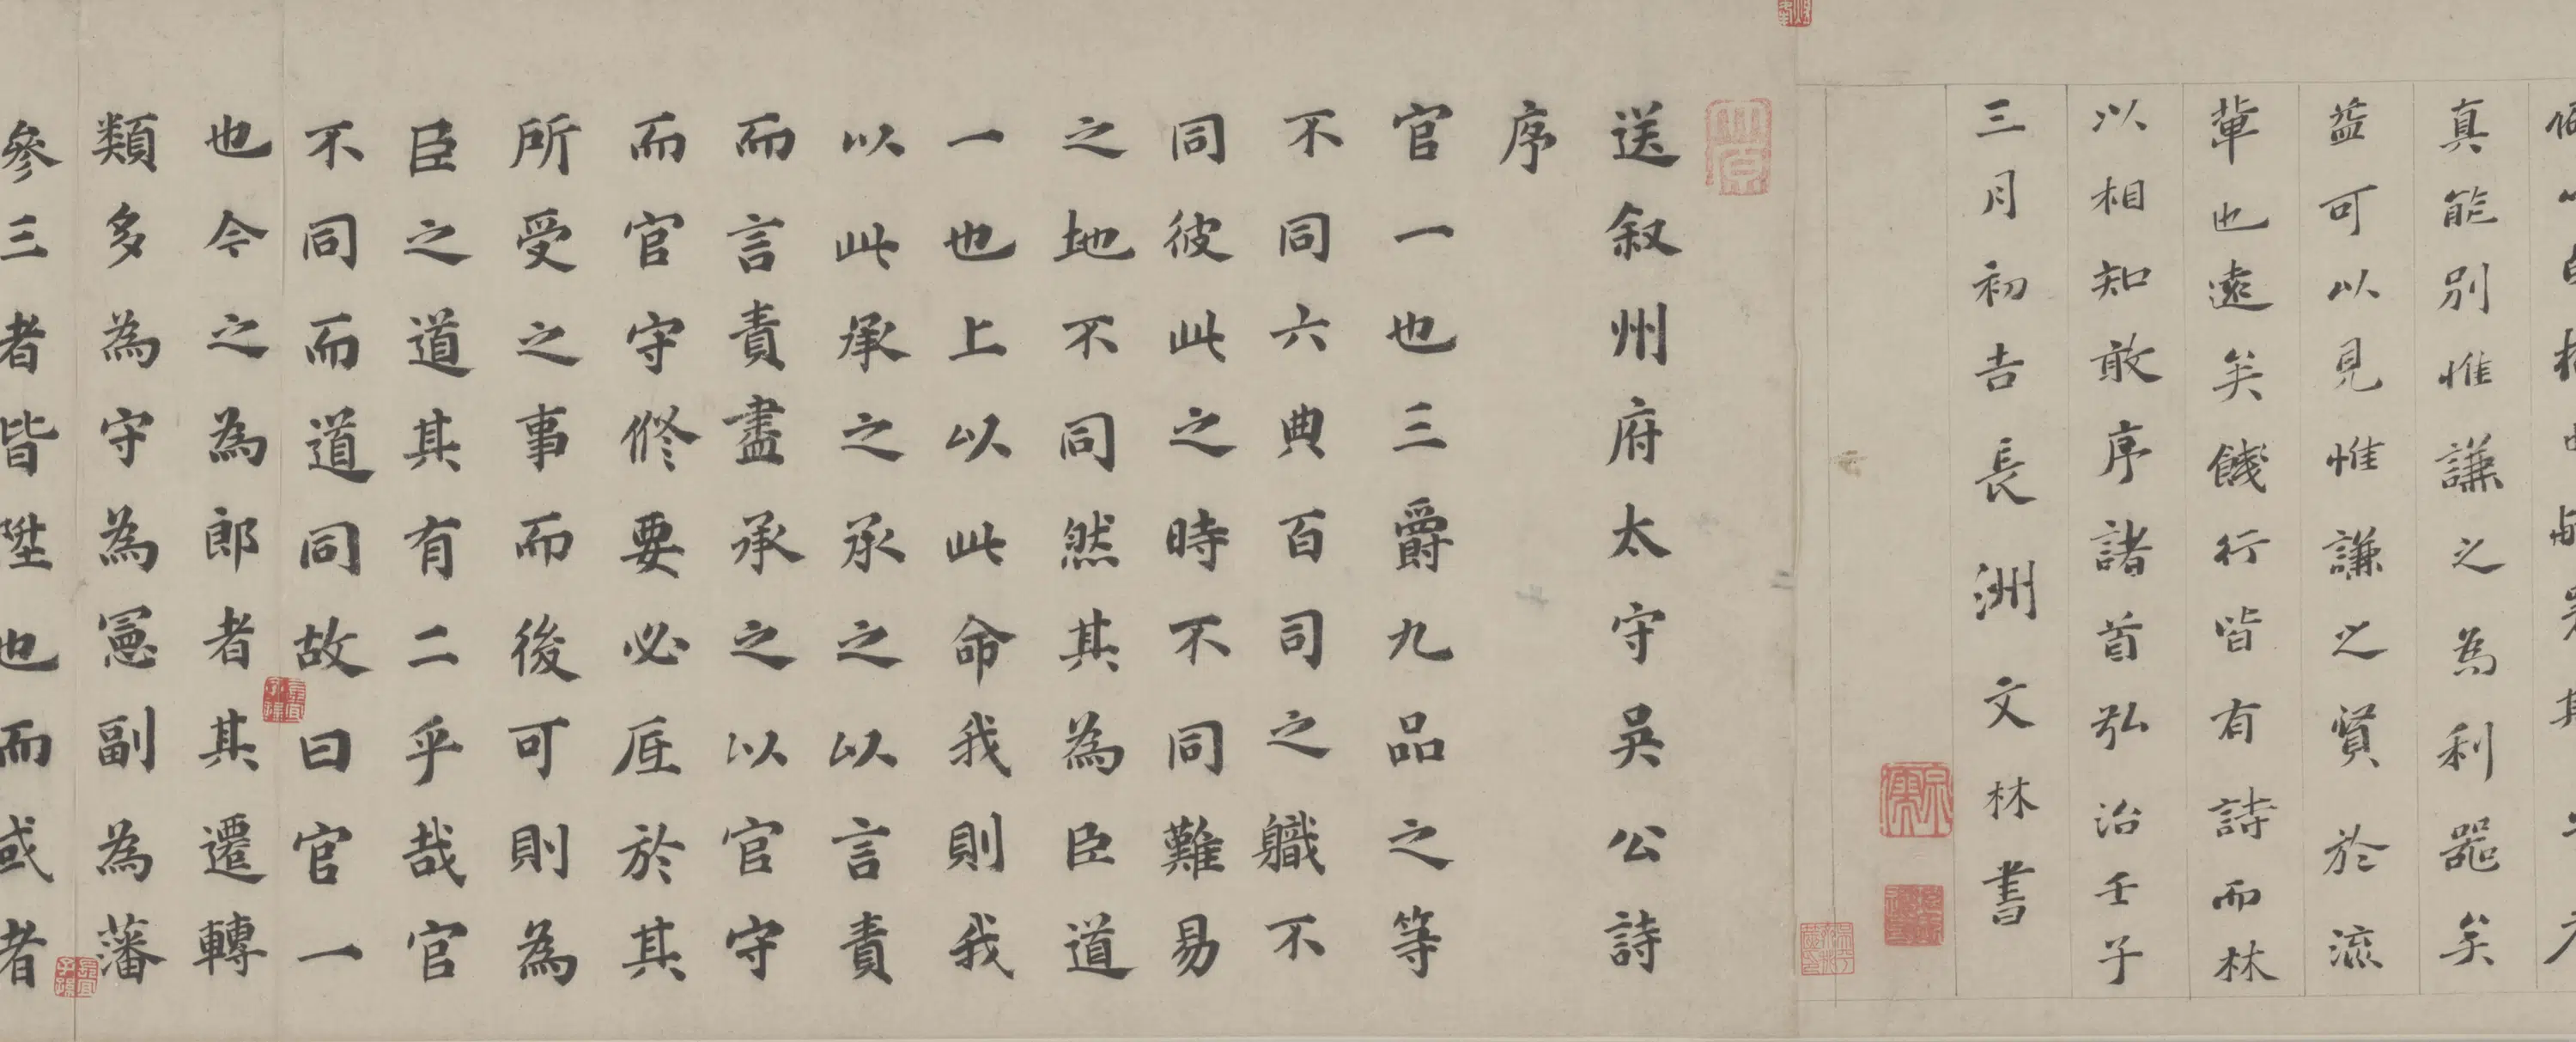 真能別惟謙之為利器矣
益可以見惟謙之賢於流
輩也遠矣餞行皆有詩而林
以相知敢序諸首弘治壬子
三月初吉長洲文林書
送叙州府太守吳公詩
序
官一也三爵九品之等
不同六典百司之軄不
同彼此之時不同難易
之地不同然其為臣道
一也上以此命我則我
以此承之承之以言責
而言責盡承之以官守
而官守修要必厓於其
所受之事而後可則為
臣之道其有二乎哉官
不同而道同故曰官一
也今之為郎者其遷轉
類多為守為憲副為藩
參三者皆陞也而或者